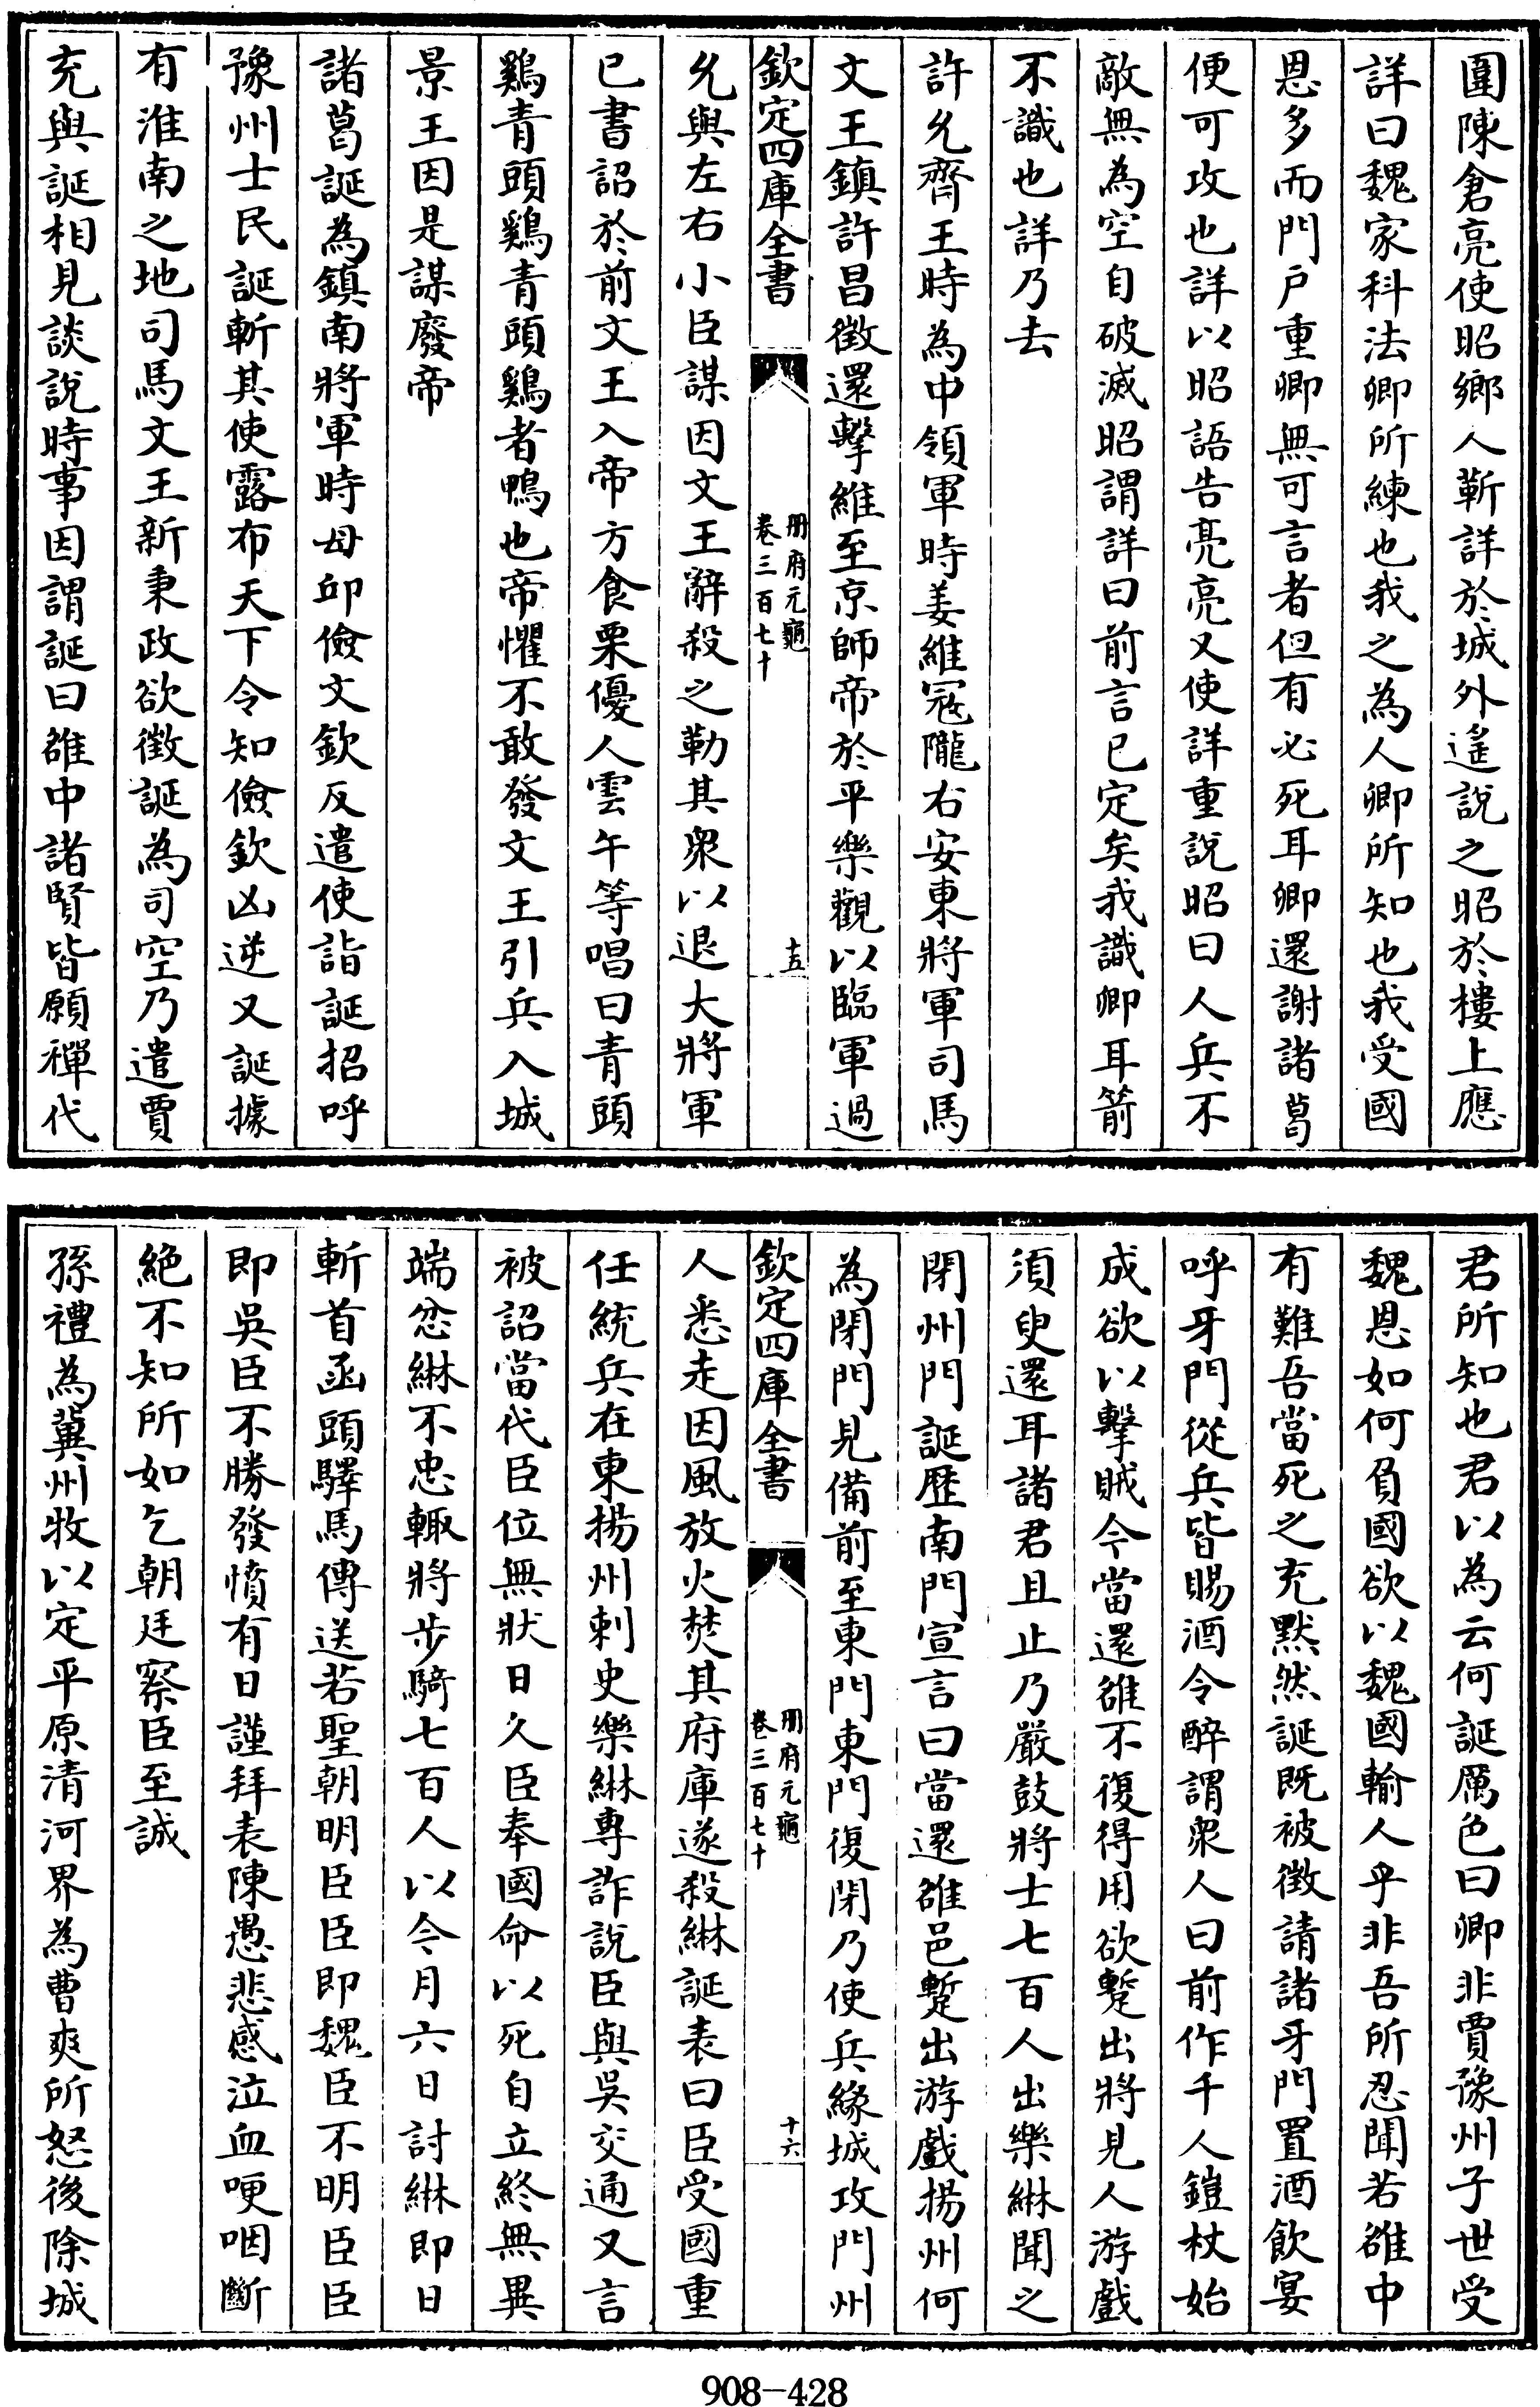 圍陳倉亮使昭鄉人靳詳於城外遙説之昭於樓上應
詳曰魏家科法卿所練也我之為人卿所知也我受國
恩多而門户重卿無可言者但有必死耳卿還謝諸葛
便可攻也詳以昭語告亮亮又使詳重說昭曰人兵不
敵無為空自破滅昭謂詳曰前言已定矣我識卿耳箭
不識也詳乃去
許允齊王時為中領軍時姜維冦隴右安東將軍司馬
文王鎮許昌徵還擊維至京師帝於平樂觀以臨軍過
欽定四庫全書
册府元龜
卷三百七十
十五
允與左右小臣謀因文王辭殺之勒其衆以退大將軍
已書詔於前文王入帝方食栗優人雲午等唱曰青頭
鷄青頭鷄青頭鷄者鴨也帝懼不敢發文王引兵入城
景王因是謀廢帝
諸葛誕為鎮南將軍時毋邱儉文欽反遣使詣誕招呼
豫州士民誕斬其使露布天下令知儉欽凶逆又誕據
有淮南之地司馬文王新秉政欲徵誕為司空乃遣賈
充與誕相見談説時事因謂誕曰雒中諸賢皆願禪代
君所知也君以為云何誕厲色曰卿非賈豫州子世受
魏恩如何負國欲以魏國輸人乎非吾所忍聞若雒中
有難吾當死之充黙然誕既被徵請諸牙門置酒飲宴
呼牙門從兵皆賜酒令醉謂衆人曰前作千人鎧杖始
成欲以擊賊今當還雒不復得用欲蹔出將見人游戲
須臾還耳諸君且止乃嚴鼓將士七百人出樂綝聞之
閉州門誕歴南門宣言曰當還雒邑蹔出游戲揚州何
為閉門見備前至東門東門復閉乃使兵緣城攻門州
欽定四庫全書
册府元龜
卷三百七十
十六
人悉走因風放火焚其府庫遂殺綝誕表曰臣受國重
任統兵在東揚州刺史樂綝專詐說臣與吳交通又言
被詔當代臣位無狀日久臣奉國命以死自立終無異
端忿綝不忠輙將步騎七百人以今月六日討綝即日
斬首函頭驛馬傳送若聖朝明臣臣即魏臣不明臣臣
即吳臣不勝發憤有日謹拜表陳愚悲感泣血哽咽斷
絶不知所如乞朝廷察臣至誠
孫禮為冀州牧以定平原清河界為曹爽所怒後除城
908-428